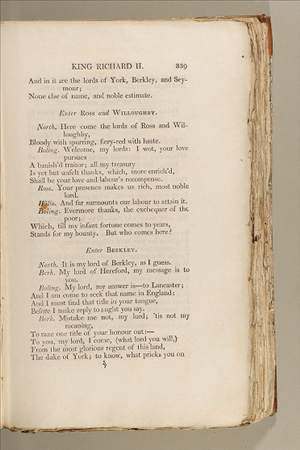 KING RICHARD II. 339
And in it are the lords of York, Berkley, and Sey-
mour;
None else of name, and noble estimate.
Enter Ross and WILLOUGHBY.
North. Here come the lords of Ross and Wil-
loughby,
Bloody with spurring, fiery-red with haste.
Boling. Welcome, my lords: I wot, your love
pursues
A banish'd traitor; all my treasury
Is yet but unfelt thanks, which, more enrich'd,
Shall be your love and labour's recompense.
Ross. Your presence makes us rich, most noble
lord.
Willo. And far surmounts our labour to attain it.
Boling. Evermore thanks, the exchequer of the
poor;
Which, till my infant fortune comes to years,
Stands for my bounty. But who comes here?
Enter BERKLEY.
North. It is my lord of Berkley, as I guess.
Berk. My lord of Hereford, my message is to
you.
Boling. My lord, my answer is—to Lancaster;
And I am come to seek that name in England:
And I must find that title in your tongue,
Before I make reply to aught you say.
Berk. Mistake me not, my lord; 'tis not my
meaning,
To raze one title of your honour out:—
To you, my lord, I come, (what lord you will,)
From the most glorious regent of this land,
The duke of York; to know, what pricks you on